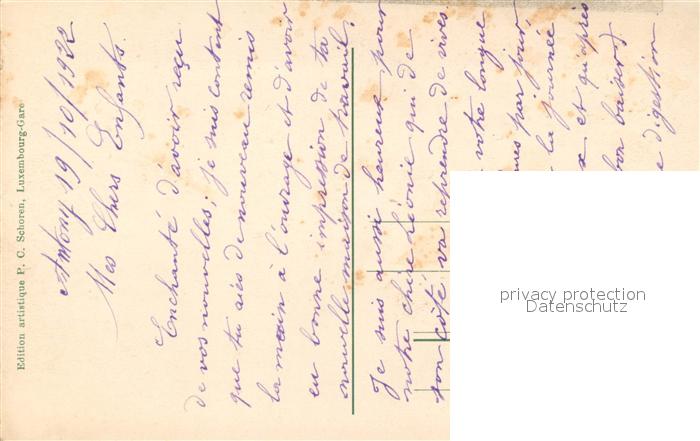 Edition artistique P. C. Schoren, Luxembourg-Gare
Antony 19/10/1922
Mes Chers Enfants.
Enchanté d'avoir reçu
de vos nouvelles, je suis content
que tu aies de nouveau remis
la main à l'ouvrage et d'avoir
eu bonne impression de ta
nouvelle maison de travail.
Je suis aussi heureux pour
notre chère Léonie qui de
son côté va reprendre de vives
votre longue
par jour,
la journée
et qu'après
bon baiser
digestion
privacy protection
Datenschutz